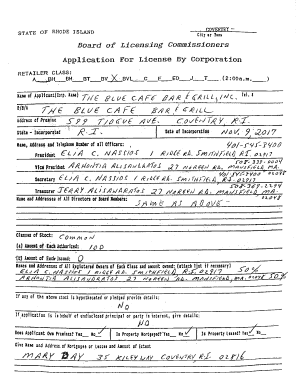 STATE OF RHODE ISLAND
COVENTRY
City or Town
Board of Licensing Commissioners
Application For License By Corporation
RETAILER CLASS:
A__BH__BM__BT__BV X BVL__C__F__ED__J__T__(2:00a.m.__)
Name of Applicant(Corp. Name) THE BLUE CAFE BAR & GRILL, INC.
D/B/A THE BLUE CAFE BAR & GRILL
Address of Premise 599 TIOGUE AVE. COVENTRY R.I.
State - Incorporated R.I. Date of Incorporation NOV. 9, 2017
Name, address and telephone Number of all officers:
President ELIA C. NASSIOS 1 RIDGE RD. SMITHFIELD R.I. 02917
Vice President ARHONTIA ALISANDRATOS 27 NOREEN RD. MANSFIELD MA.
Secretary ELIA C. NASSIOS 1 RIDGE RD. SMITHFIELD, R.I. 02917
Treasurer JERRY ALISANDRATOS 27 NOREEN RD. MANSFIELD MA.
Name and Addresses of All Directors or Board Members:
SAME AS ABOVE
Classes of Stock: COMMON
(a) Amount of Each Authorized: 100
(b) Amount of Each Issued: 0
Name and Addresses of All Registered Owners of Each Class and Amount Owned: (attach list if necessary)
ELIA C. NASSIOS 1 RIDGE RD. SMITHFIELD R.I. 02917 50%
ARHONTIA ALISANDRATOS 27 NOREEN RD. MANSFIELD, MA. 50%
If any of the above stock is hypothecated or pledged provide details:
NO
If application is in behalf of undisclosed principal or party in interest, give details:
NO
Does Applicant Own Premises? Yes__ No ✓ Is Property Mortgaged? Yes__ No ✓ Is Property Leased? Yes ✓ No__
Give Name and Address of Mortgagee or Lessee and Amount of Extent
MARY DAY 35 RILEY WAY COVENTRY R.I. 02816